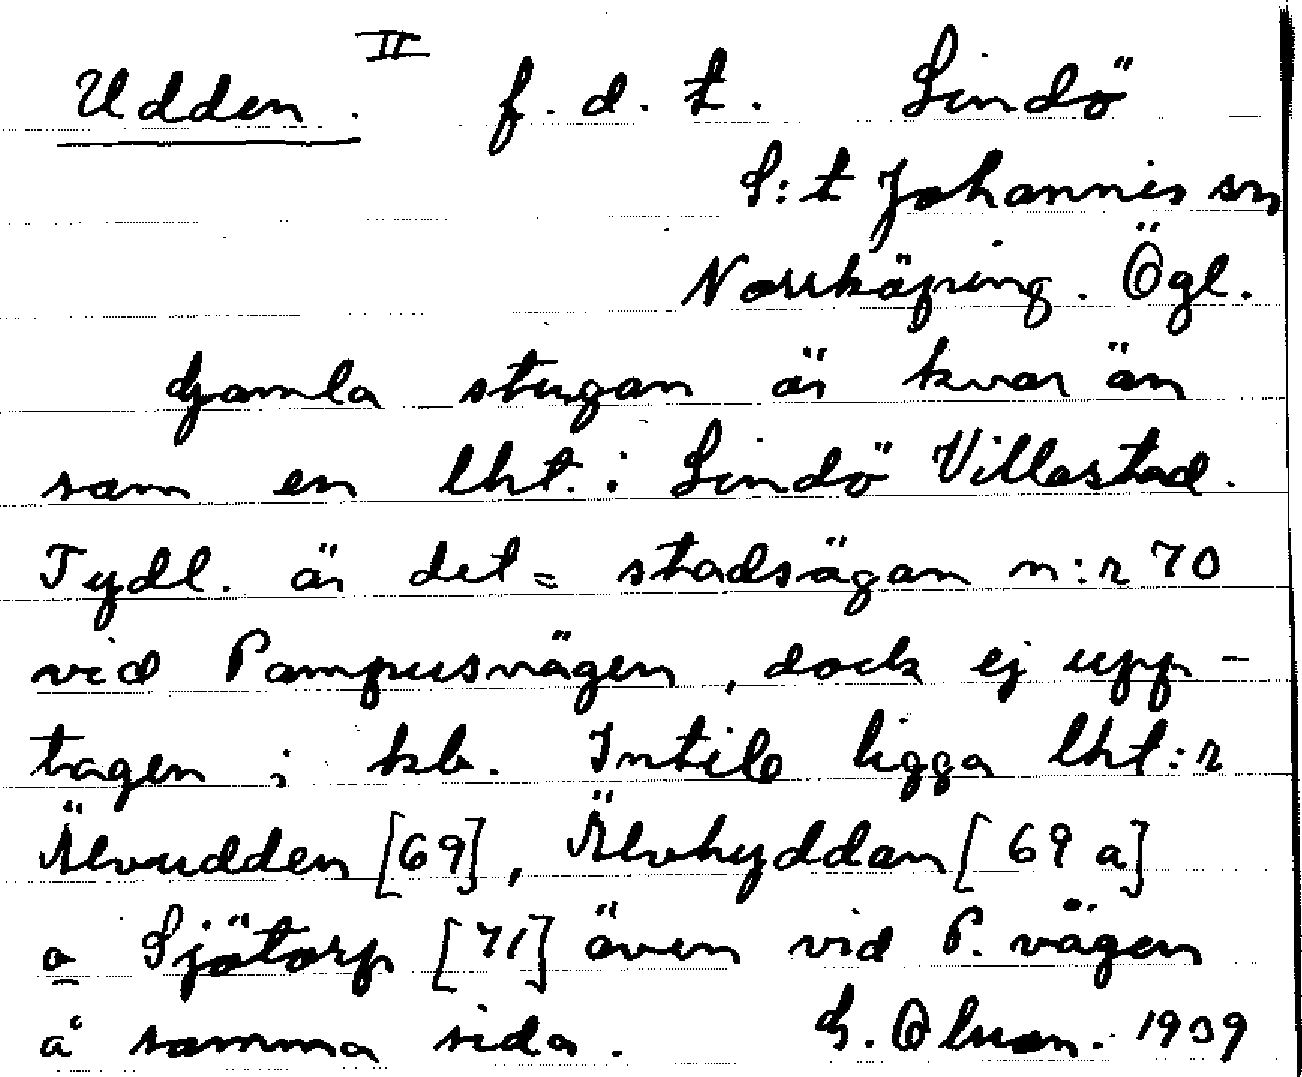 Udden. II f. d. t. Lindö
S:t Johannis sn
Norrköping. Ögl.
Gamla stugan är kvar än
som en lht. i Lindö Villastad.
Tydl. är det = stadsägan n:r 70
vid Pampusvägen, dock ej upp-
tagen i kb. Intill ligga lht:r
Älvudden [69], Älvhyddan [69 a]
o Sjötorp [71] även vid P. vägen
å samma sida. G. Olsson. 1939